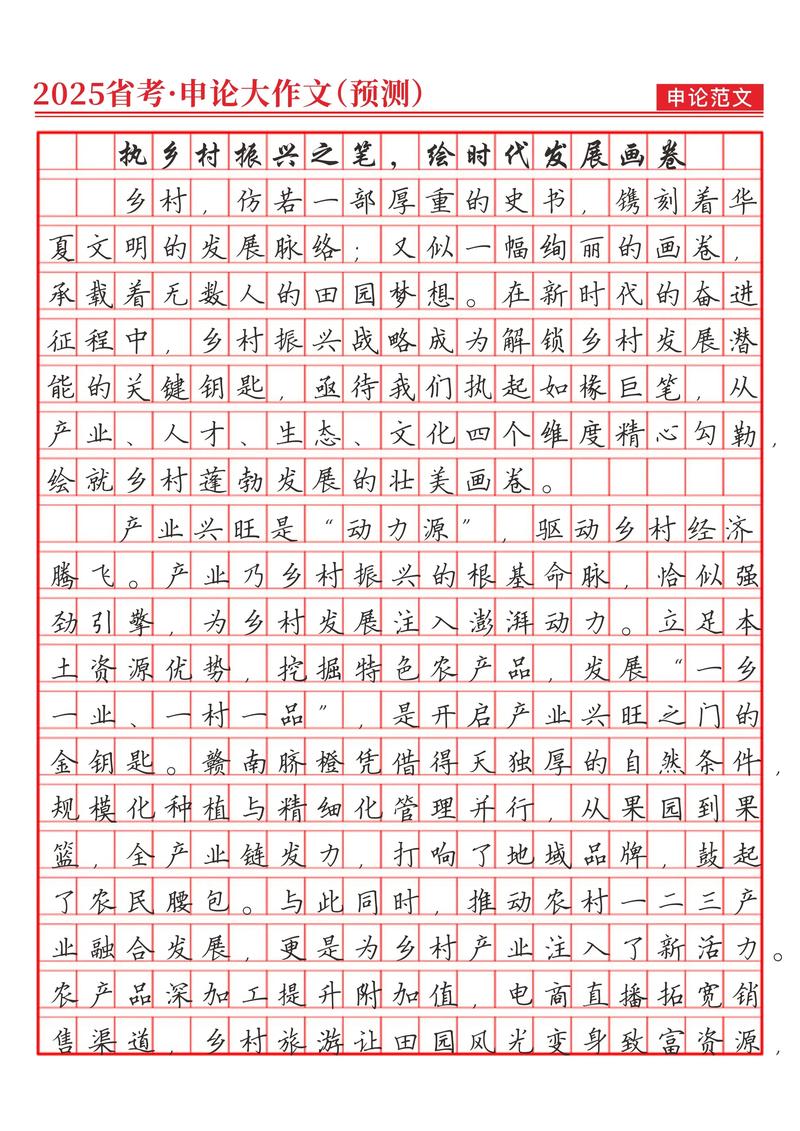 2025省考·申论大作文(预测)
申论范文
执乡村振兴之笔，绘时代发展画卷
乡村，仿若一部厚重的史书，镌刻着华
夏文明的发展脉络；又似一幅绚丽的画卷，
承载着无数人的田园梦想。在新时代的奋进
征程中，乡村振兴战略成为解锁乡村发展潜
能的关键钥匙，亟待我们执起如椽巨笔，从
产业、人才、生态、文化四个维度精心勾勒，
绘就乡村蓬勃发展的壮美画卷。
产业兴旺是“动力源”，驱动乡村经济
腾飞。产业乃乡村振兴的根基命脉，恰似强
劲引擎，为乡村发展注入澎湃动力。立足本
土资源优势，挖掘特色农产品，发展“一乡
一业、一村一品”，是开启产业兴旺之门的
金钥匙。赣南脐橙凭借得天独厚的自然条件，
规模化种植与精细化管理并行，从果园到果
篮，全产业链发力，打响了地域品牌，鼓起
了农民腰包。与此同时，推动农村一二三产
业融合发展，更是为乡村产业注入了新活力。
农产品深加工提升附加值，电商直播拓宽销
售渠道，乡村旅游让田园风光变身致富资源，